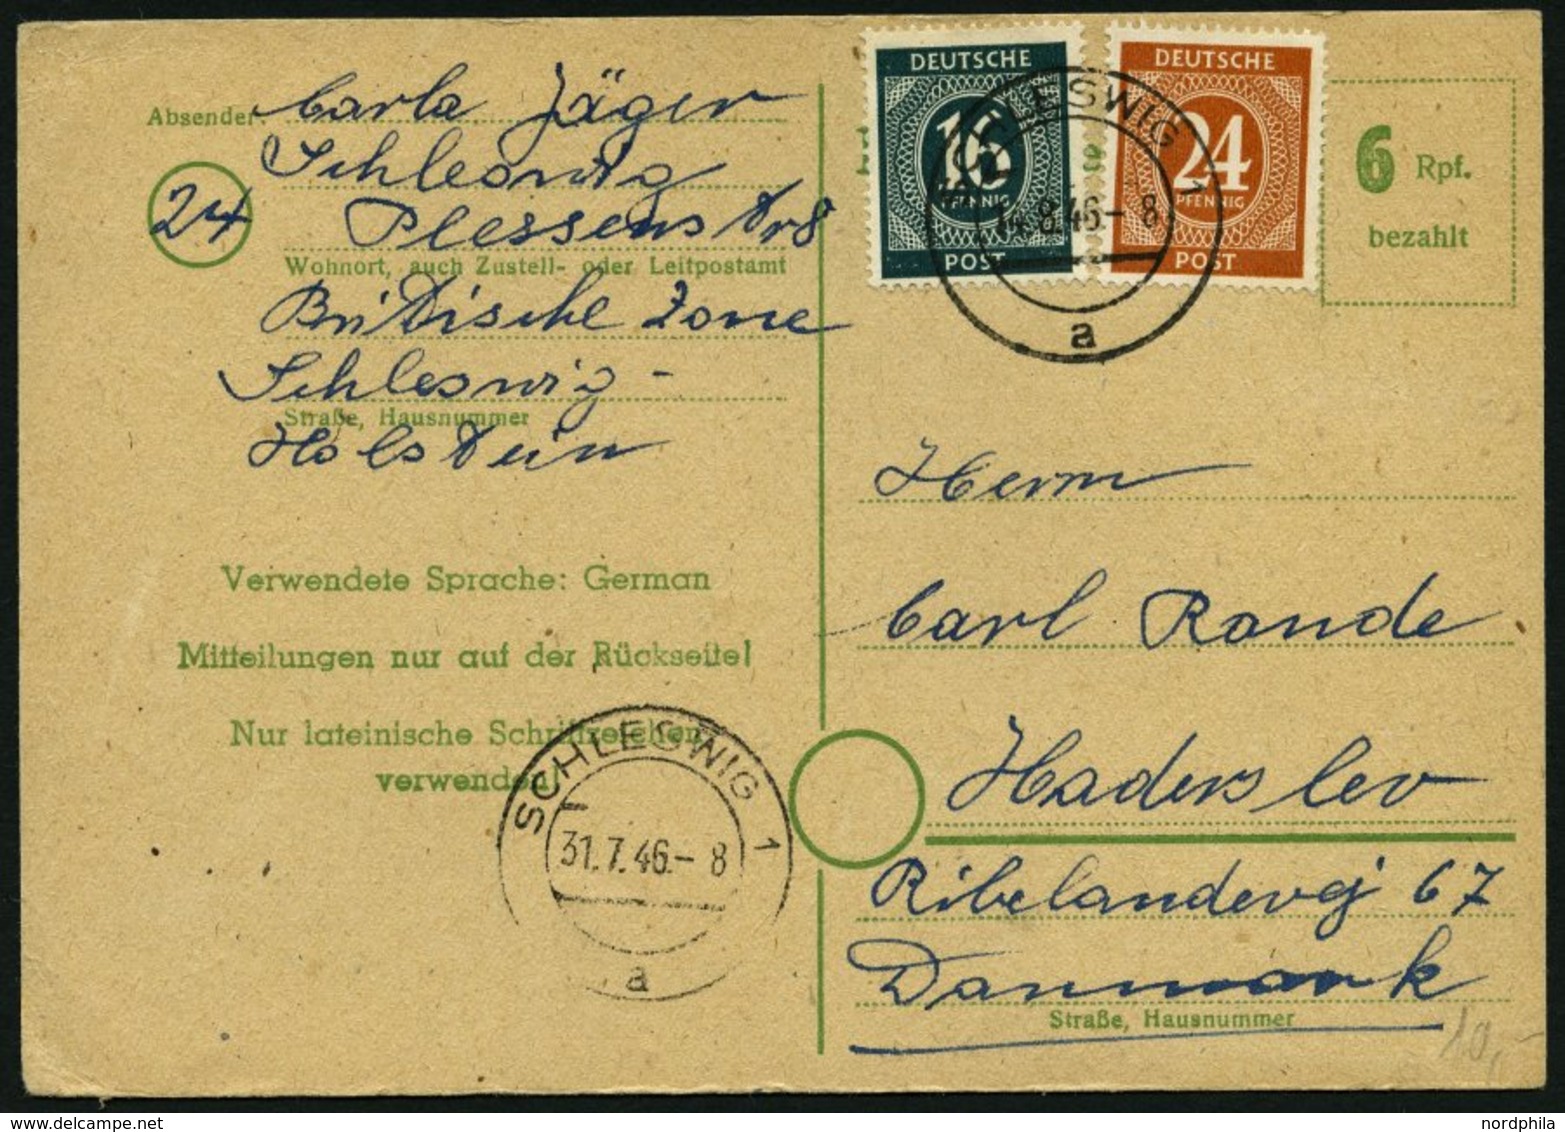 Absender Carla Jäger
Schleswig
24 Plessenstr 8
Wohnort, auch Zustell- oder Leitpostamt
Britische Zone
Schleswig-
Straße, Hausnummer
Holstein
Verwendete Sprache: German
Mitteilungen nur auf der Rückseite!
Nur lateinische Schriftzeichen
verwenden!
SCHLESWIG 1
31.7.46.- 8
a
DEUTSCHE
16
PFENNIG
POST
DEUTSCHE
24
PFENNIG
POST
SCHLESWIG 1
14.8.46.- 8
a
6 Rpf.
bezahlt
Herrn
Carl Rande
Haderslev
Ribelandevej 67
Danmark
Straße, Hausnummer
10,-
nordphila